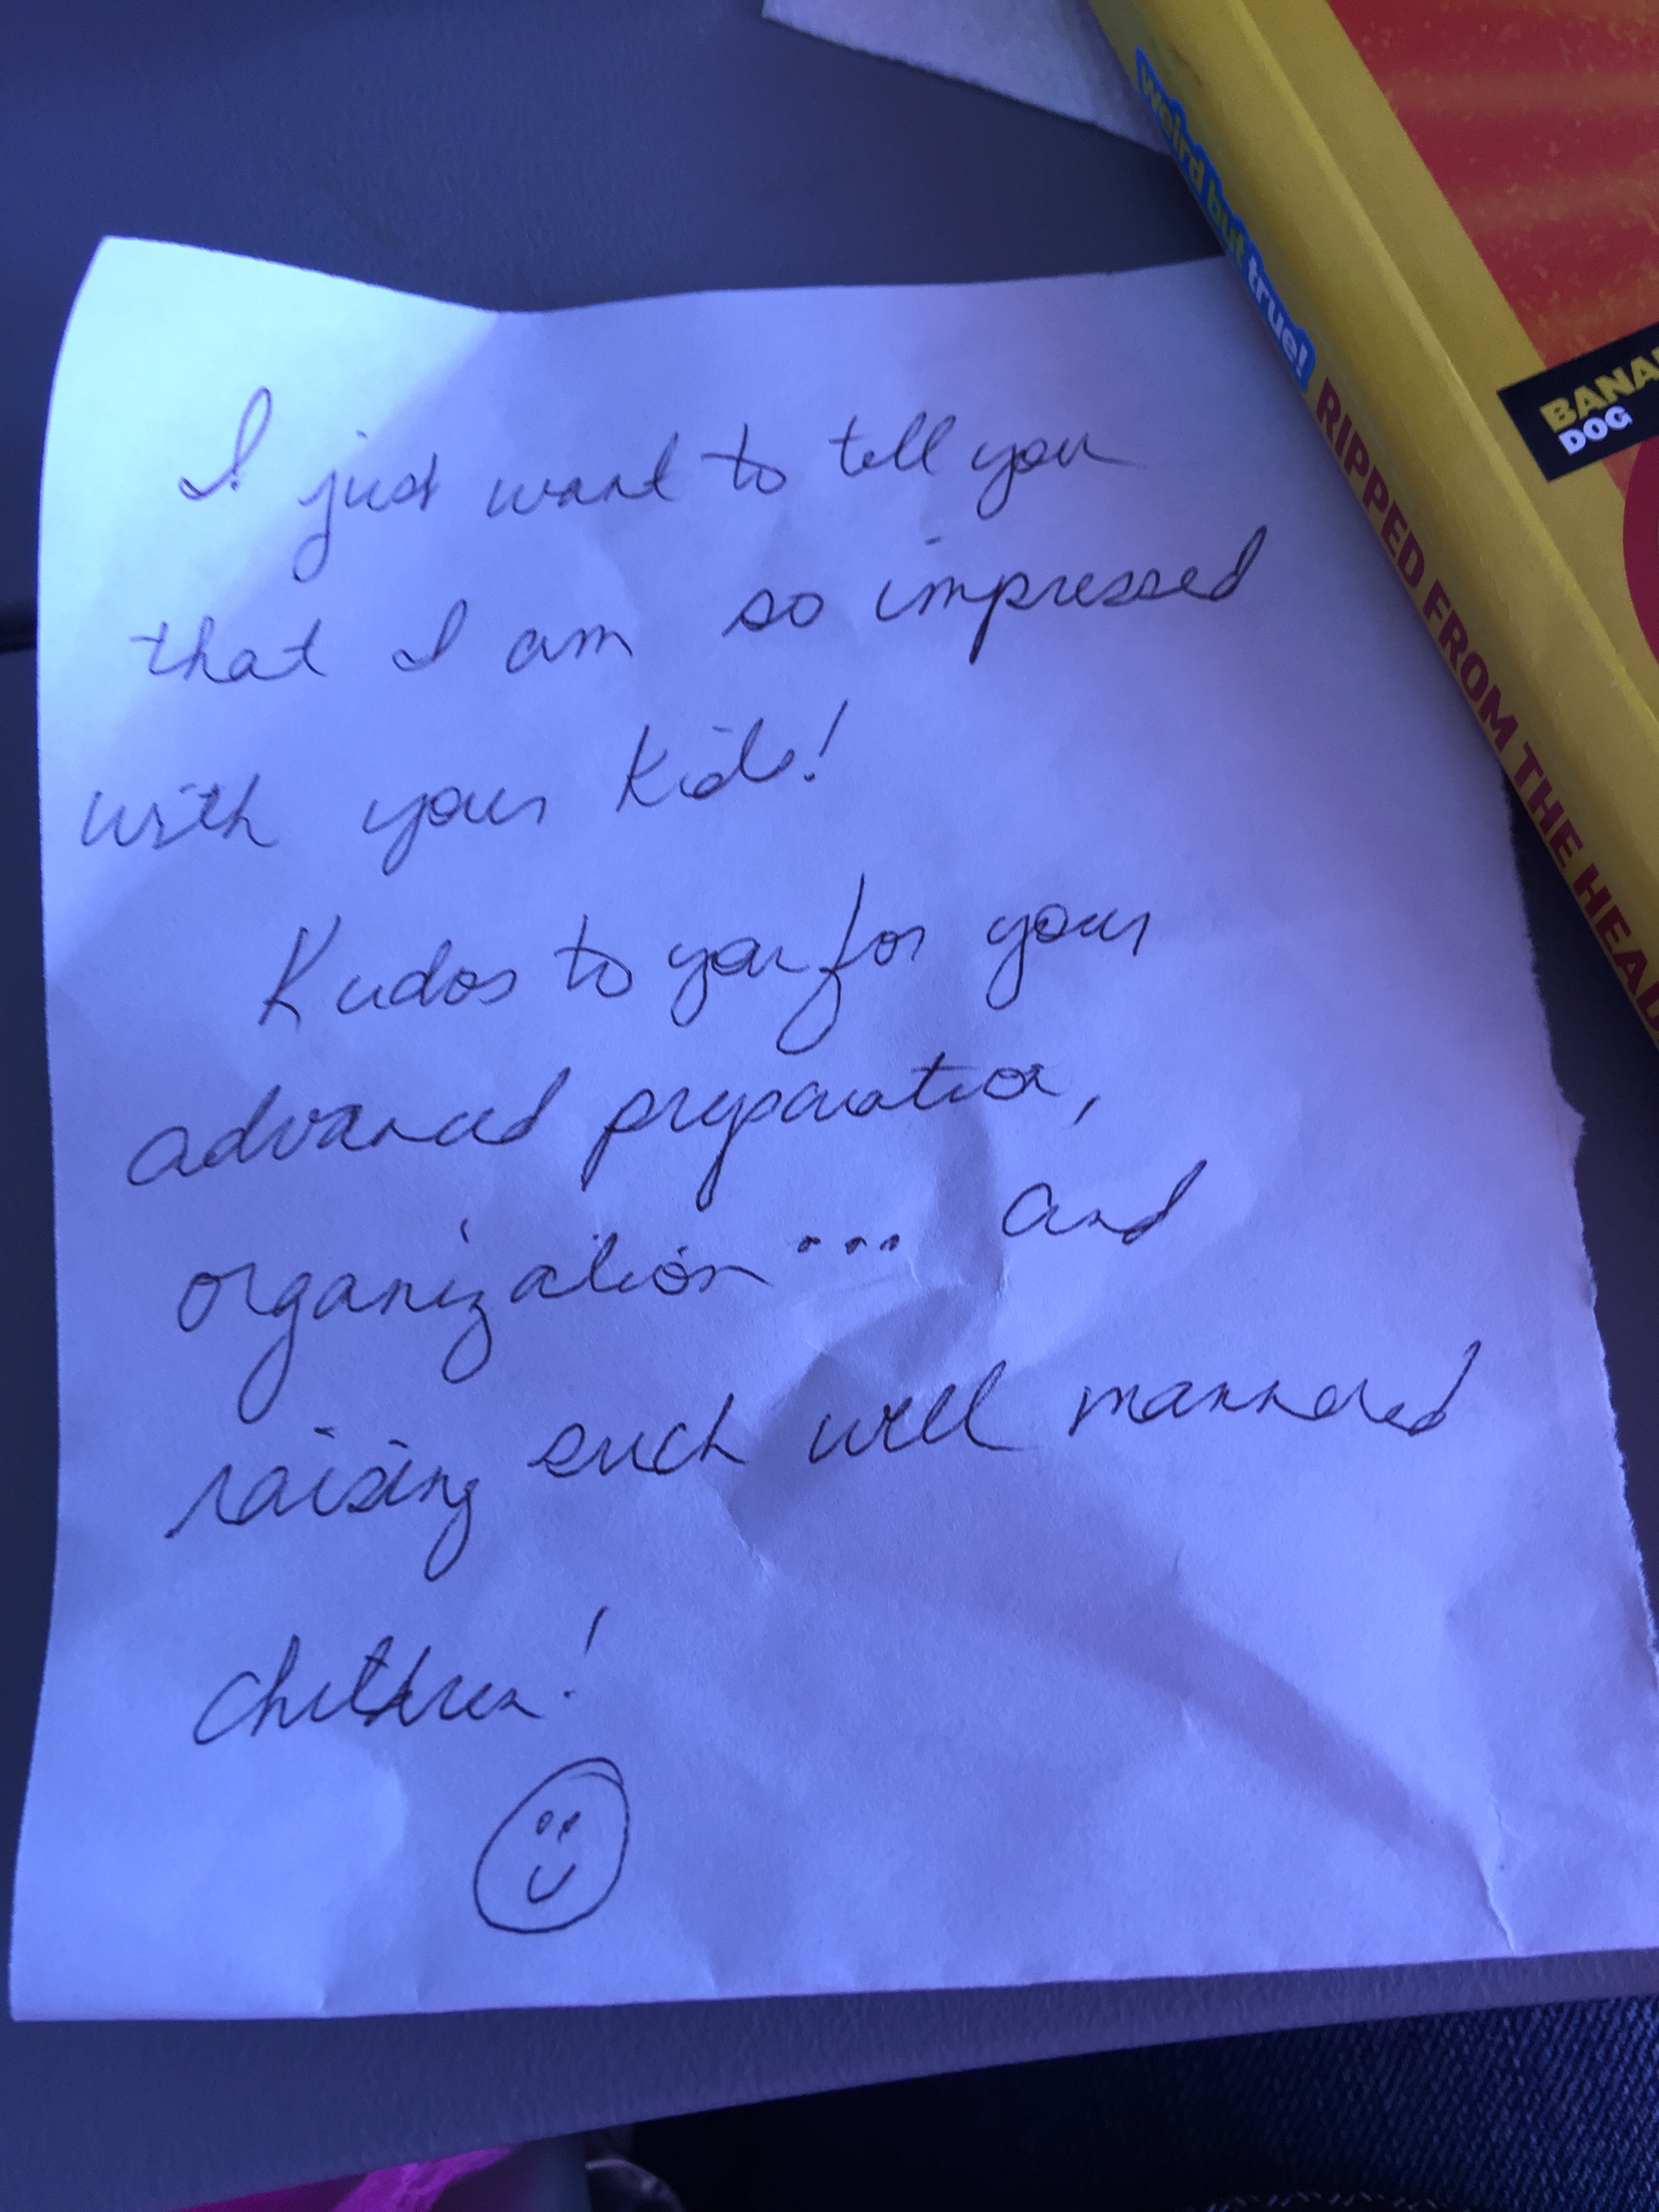 I just want to tell you
that I am so impressed
with your kids!
Kudos to you for your
advanced preparation,
organization... and
raising such well mannered
children!
weird but true! RIPPED FROM THE HEAD
BANA
DOG